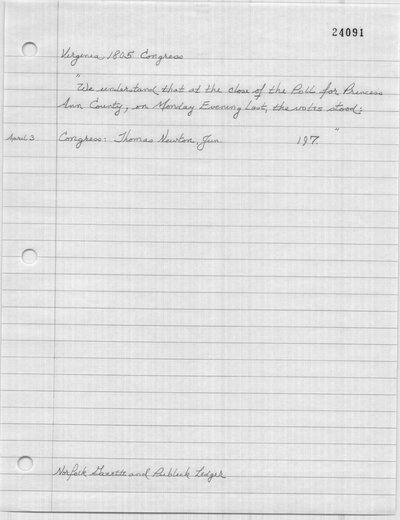 24091
Virginia 1805 Congress
"We understand that at the close of the Poll for Princess
Ann County, on Monday Evening Last, the votes stood:
April 3 Congress: Thomas Newton, Jun. 197."
Norfolk Gazette and Publick Ledger